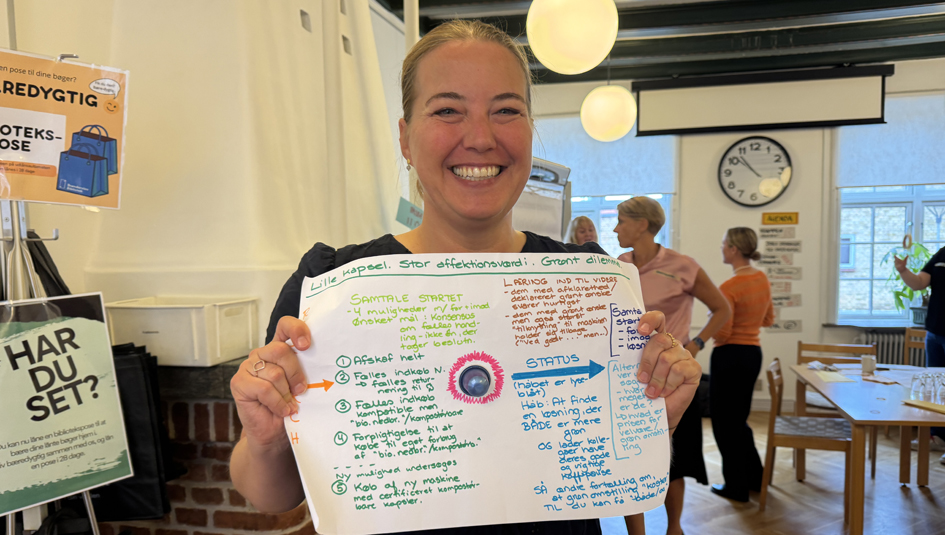 en pose til dine bøger?
REDYGTIG
OTEKS-
POSE
HAR
DU
SET?
Du kan nu låne en bibliotekspose til at
bære dine lånte bøger hjem i.
en pose i 28 dage.
Lille kapsel. Stor affektionsværdi.. Grønt dilemma
SAMTALE STARTET
- 4 muligheder m/ for & imod
Ønsket mål: Konsensus
om fælles hand-
ling - ikke én der
tager beslutn.
① Afskaf helt
② Fælles indkøb N.
→ fælles retur-
nering til
③ Fælles indkøb
kompatible men
"bio.nedbr./komposterbare
④ Forpligtigelse til at
købe til eget forbrug
af "bio.nedbr./kompostrb."
Ny mulighed undersøges
⑤ Køb af ny maskine
med certificeret kompostér-
bare kapsler.
C
H
LÆRING IND TIL VIDERE
- dem med afklarethed/
deklareret grønt ønske
svarer hurtigst
- dem med grønt ønske
men også størst
"tilknytning" til maskinen
holder sig tilbage
("ved godt..." men..)
STATUS
(håbet er lyse-
blåt)
Håb: At finde
en løsning, der
BÅDE er mere
grøn
OG lader kolle-
gaer have
deres gode
og vigtige
kaffepause
SÅ ændre fortælling om,
at grøn omstilling "koster"
TIL du kan få "både/og"
Samta
star
- fo
- imo
- løsn
Altern
ver v
saa
er de
prisen f
velvære
grøn omstil-
ling
AGENDA
12
11
10
9
8
7
6
5
4
3
2
1